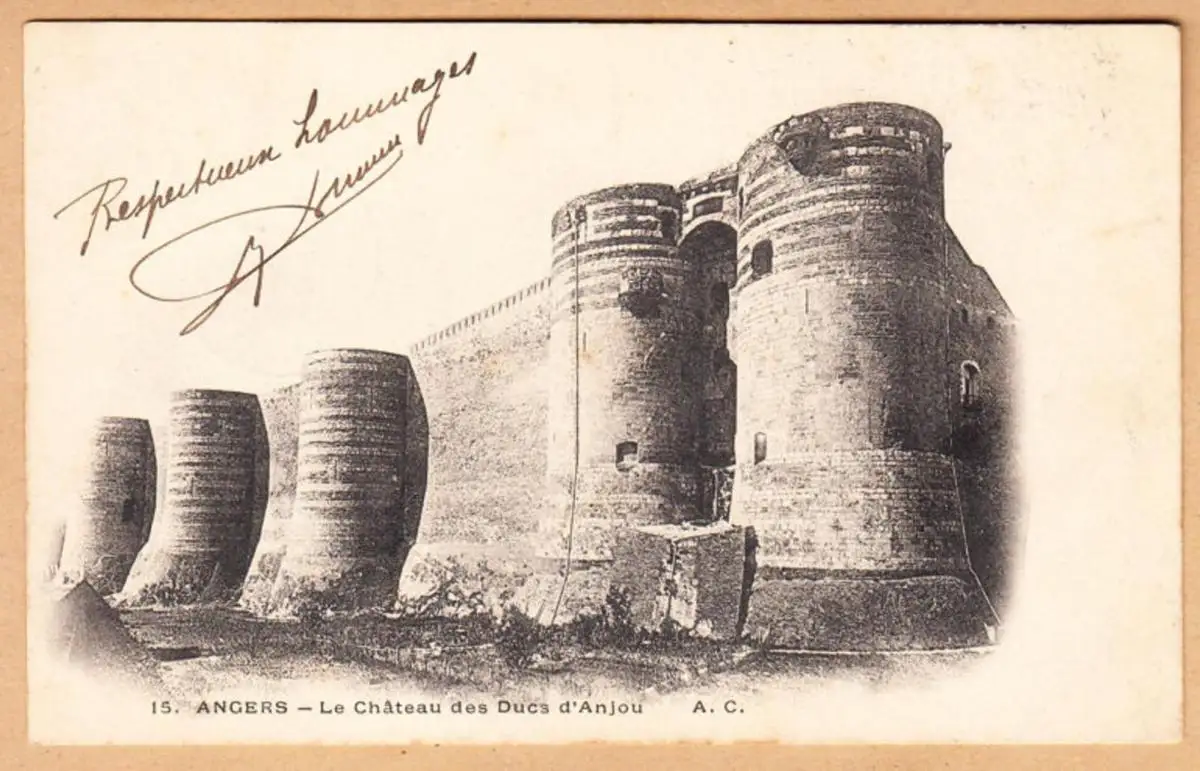 Respectueux hommages
15. ANGERS – Le Château des Ducs d'Anjou A. C.